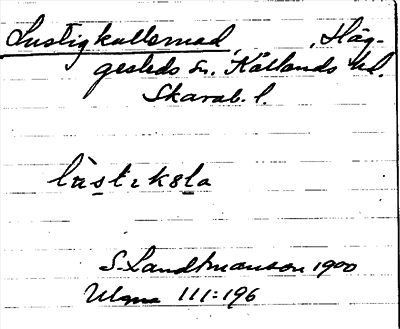 Lustigkullemad, , Häg-
gesleds sn. Kållands hd.
Skarab. l.
lùstıksla
S. Landtmanson 1900
Ulgna 111:196